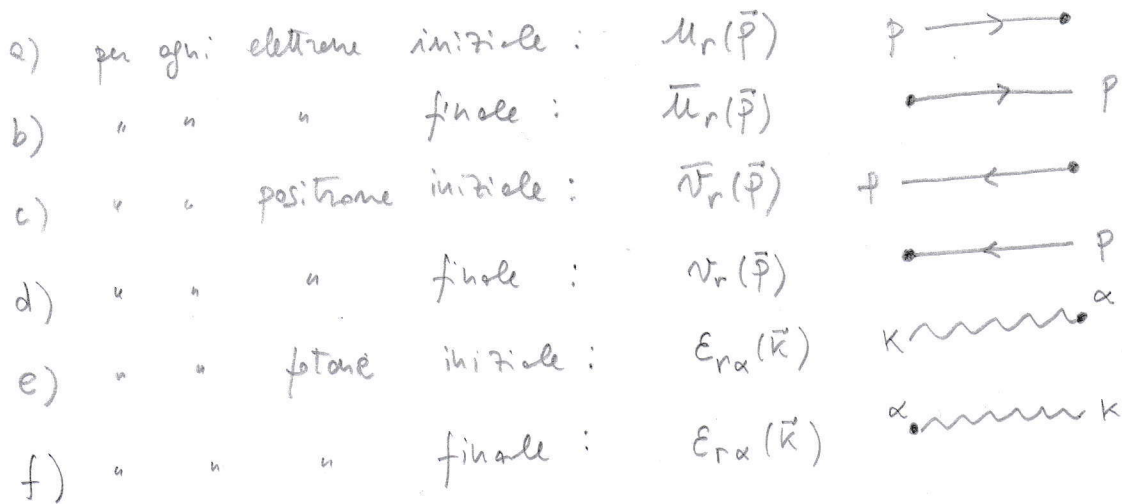 a) per ogni elettrone iniziale : u_r(p⃗) p
b) " " " finale : ū_r(p⃗) p
c) " " positrone iniziale : v̄_r(p⃗) p
d) " " " finale : v_r(p⃗) p
e) " " fotone iniziale : ε_rα(k⃗) k α
f) " " " finale : ε_rα(k⃗) α k